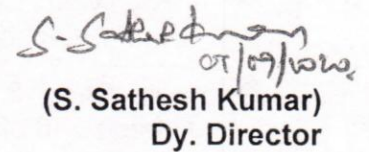 S. Sathesh Kumar
07/09/2020.
(S. Sathesh Kumar)
Dy. Director